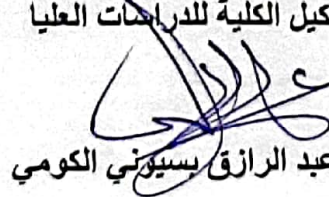 كيل الكلية للدراسات العليا
عبد الرازق بسيوني الكومي